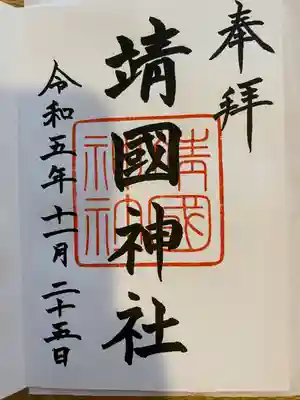 奉拝
靖國神社
靖國
神社
令和五年十一月二十五日